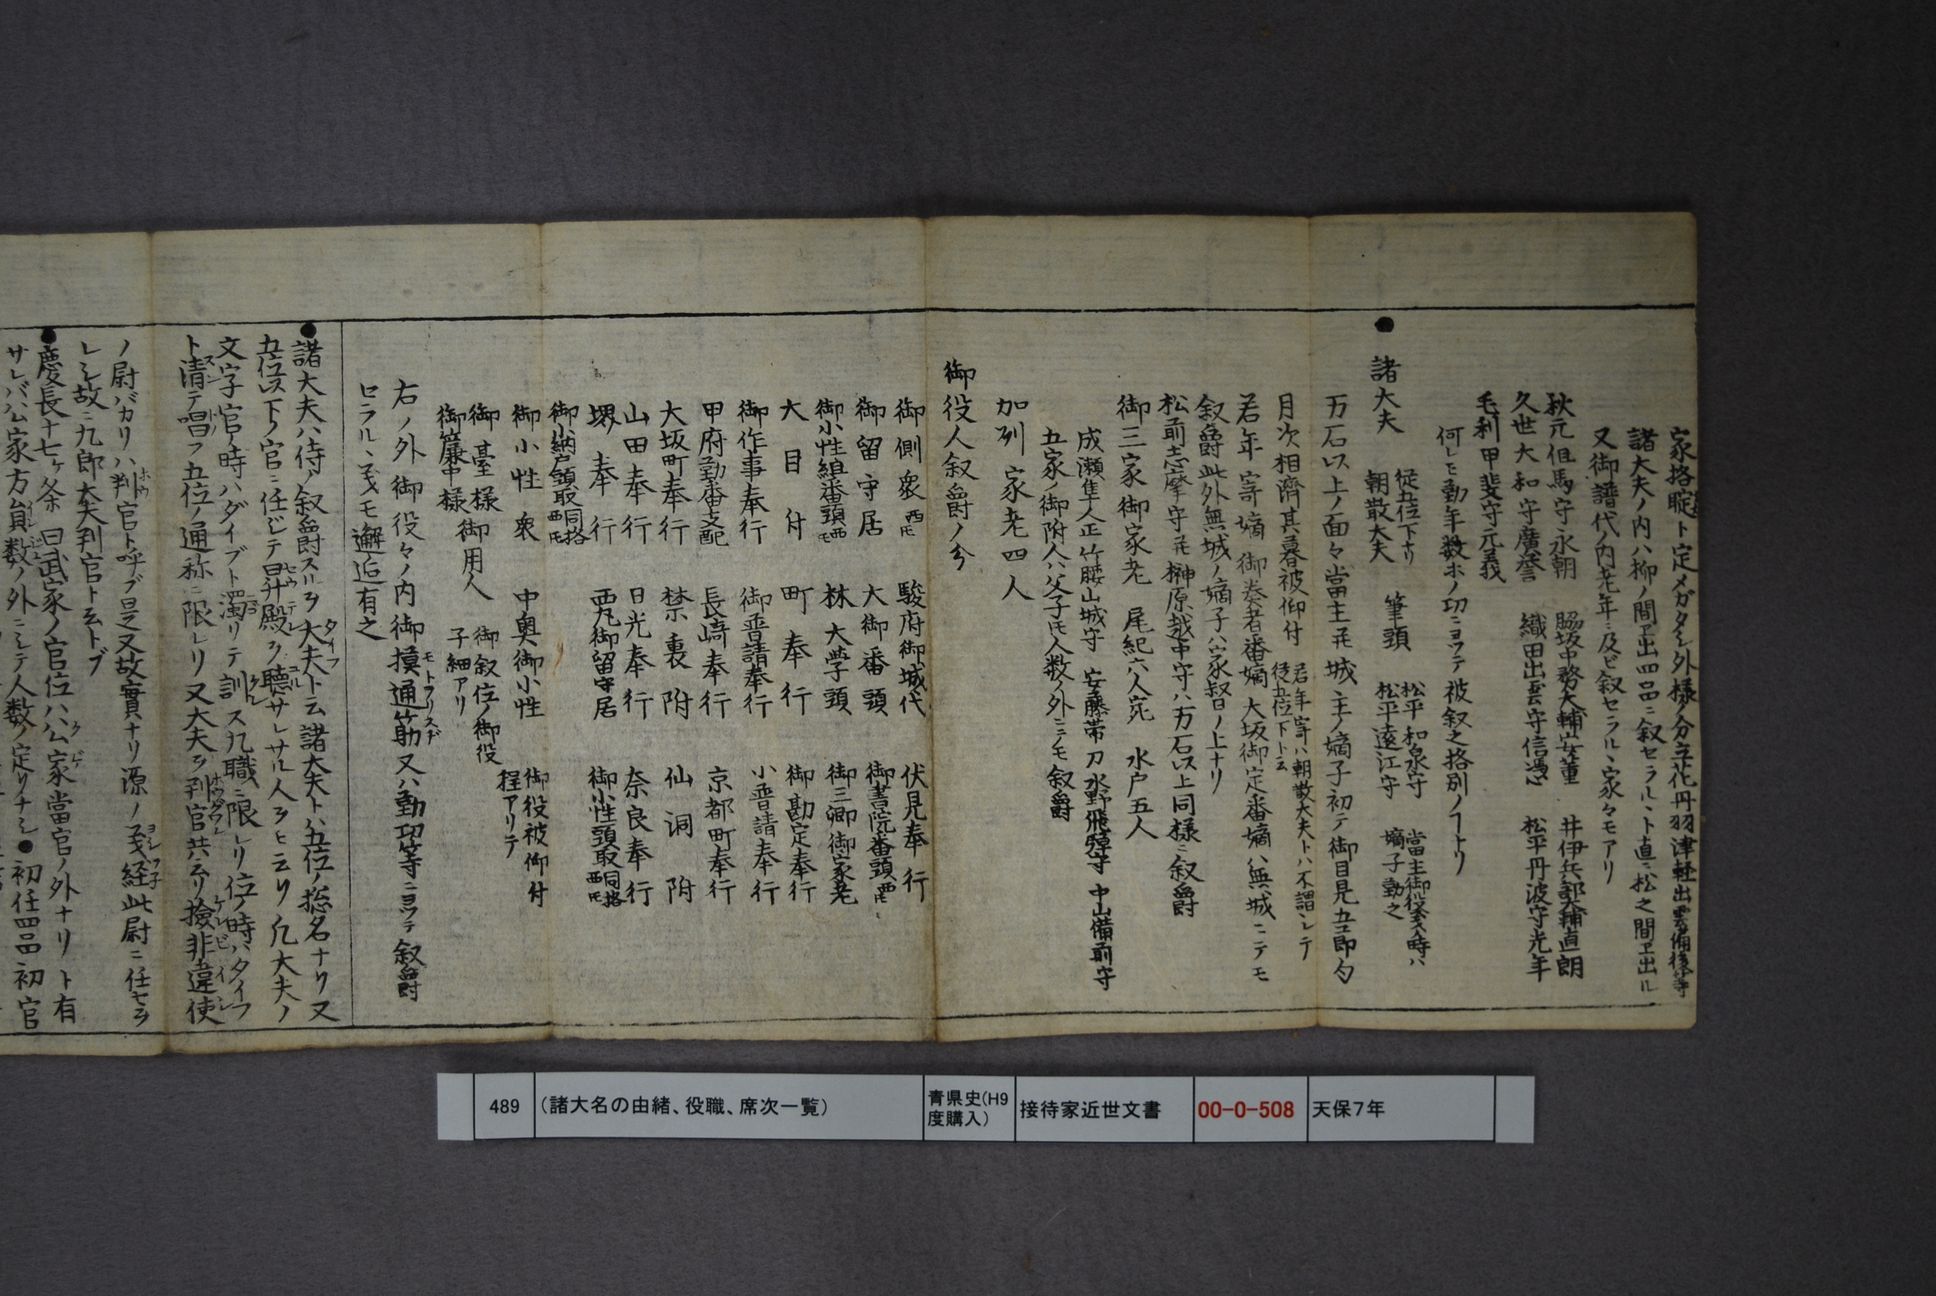 家格聢ト定メガタシ外様ノ分立花丹羽津軽出雲備後等
諸大夫ノ内ハ柳ノ間ヱ出四品ニ叙セラルヽト直ニ松之間ヱ出ル
又御譜代ノ内老年ニ及ビ叙セラルヽ家々モアリ
秋元但馬守永朝 脇坂中務大輔安董 井伊兵部大輔直朗
久世大和守廣誉 織田出雲守信憑 松平丹波守光年
毛利甲斐守元義
何レモ勤年数ホノ功ニヨツテ被叙之格別ノヿナリ
●諸大夫 従五位下ナリ 朝散大夫 筆頭 松平和泉守 松平遠江守 當主御役義ノ時ハ 嫡子勤之
万石以上ノ面々當主并城主ノ嫡子初テ御目見五節句
月次相濟其暮被仰付 若年寄ハ朝散大夫トハ不謂シテ 従五位下ト云
若年寄嫡 御奏者番嫡 大坂御定番嫡ハ無城ニテモ
叙爵此外無城ノ嫡子ハ家叙日ノ上ナリ
松前志摩守并榊原越中守ハ万石以上同様ニ叙爵
御三家御家老 尾紀六人宛 水戸五人
成瀬隼人正 竹腰山城守 安藤帯刀 水野飛騨守 中山備前守
五家ノ御附人ハ父子氏人数ノ外ニテモ叙爵
加列 家老四人
御役人叙爵ノ分
御側衆 西氏 駿府御城代 伏見奉行
御留守居 大御番頭 御書院番頭 西氏
御小性組番頭 西氏 林大学頭 御三卿御家老
大目付 町奉行 御勘定奉行
御作事奉行 御普請奉行 小普請奉行
甲府勤番支配 長崎奉行 京都町奉行
大坂町奉行 禁裏附 仙洞附
山田奉行 日光奉行 奈良奉行
堺奉行 西丸御留守居 御小性頭取 同格 西氏
御小納戸頭取 同格 西氏
御小性衆 中奥御小性 御役被仰付 程アリテ
御臺様 御簾中様 御用人 御叙位御役 子細アリ
右ノ外御役々ノ内御摸通筋又ハ勤功等ニヨツテ叙爵
セラルヽ義モ邂逅有之
●諸大夫ハ侍ノ叙爵スルヲ大夫ト云諸大夫トハ五位ノ惣名ナリ又
五位以下ノ官ニ任ジテ昇殿ヲ聴サレサル人ヲモ云リ凡大夫ノ
文字官ノ時ハダイブト濁リテ訓ス九職ニ限レリ位ノ時ハタイフ
ト清テ唱フ五位ノ通称ニ限レリ又大夫ヲ判官共云リ撿非違使
ノ尉バカリハ判官ト呼ブ是又故實ナリ源ノ義経此尉ニ任セラ
レシ故ニ九郎大夫判官ト云トブ
●慶長十七ヶ条ニ曰武家ノ官位ハ公家當官ノ外ナリト有
サレバ公家方員数ノ外ニシテ人数ノ定リナシ●初任四品初官
489 (諸大名の由緒、役職、席次一覧) 青県史(H9度購入) 接待家近世文書 00-0-508 天保7年